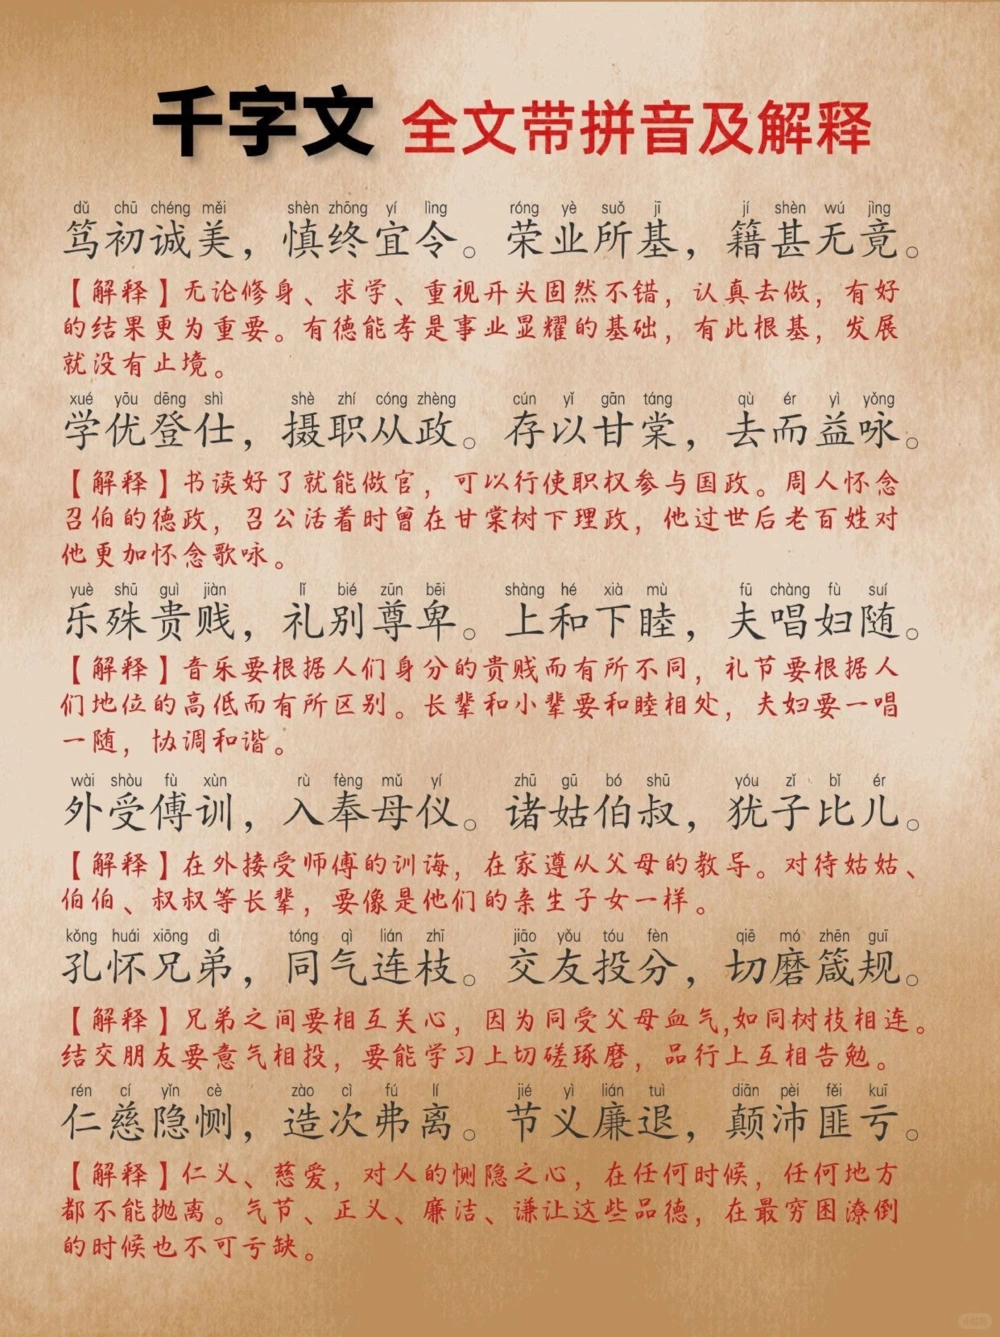 千字文 全文带拼音及解释
dǔ chū chéng měi shèn zhōng yí lìng róng yè suǒ jī jí shèn wú jìng
笃初诚美，慎终宜令。荣业所基，籍甚无竟。
【解释】无论修身、求学、重视开头固然不错，认真去做，有好
的结果更为重要。有德能孝是事业显耀的基础，有此根基，发展
就没有止境。
xué yōu dēng shì shè zhí cóng zhèng cún yǐ gān táng qù ér yì yǒng
学优登仕，摄职从政。存以甘棠，去而益咏。
【解释】书读好了就能做官，可以行使职权参与国政。周人怀念
召伯的德政，召公活着时曾在甘棠树下理政，他过世后老百姓对
他更加怀念歌咏。
yuè shū guì jiàn lǐ bié zūn bēi shàng hé xià mù fū chàng fù suí
乐殊贵贱，礼别尊卑。上和下睦，夫唱妇随。
【解释】音乐要根据人们身分的贵贱而有所不同，礼节要根据人
们地位的高低而有所区别。长辈和小辈要和睦相处，夫妇要一唱
一随，协调和谐。
wài shòu fù xùn rù fèng mǔ yí zhū gū bó shū yóu zǐ bǐ ér
外受傅训，入奉母仪。诸姑伯叔，犹子比儿。
【解释】在外接受师傅的训诲，在家遵从父母的教导。对待姑姑、
伯伯、叔叔等长辈，要像是他们的亲生子女一样。
kǒng huái xiōng dì tóng qì lián zhī jiāo yǒu tóu fèn qiē mó zhēn guī
孔怀兄弟，同气连枝。交友投分，切磨箴规。
【解释】兄弟之间要相互关心,因为同受父母血气,如同树枝相连。
结交朋友要意气相投，要能学习上切磋琢磨，品行上互相告勉。
rén cí yǐn cè zào cì fú lí jié yì lián tuì diān pèi fěi kuī
仁慈隐恻，造次弗离。节义廉退，颠沛匪亏。
【解释】仁义、慈爱，对人的恻隐之心，在任何时候，任何地方
都不能抛离。气节、正义、廉洁、谦让这些品德，在最穷困潦倒
的时候也不可亏缺。